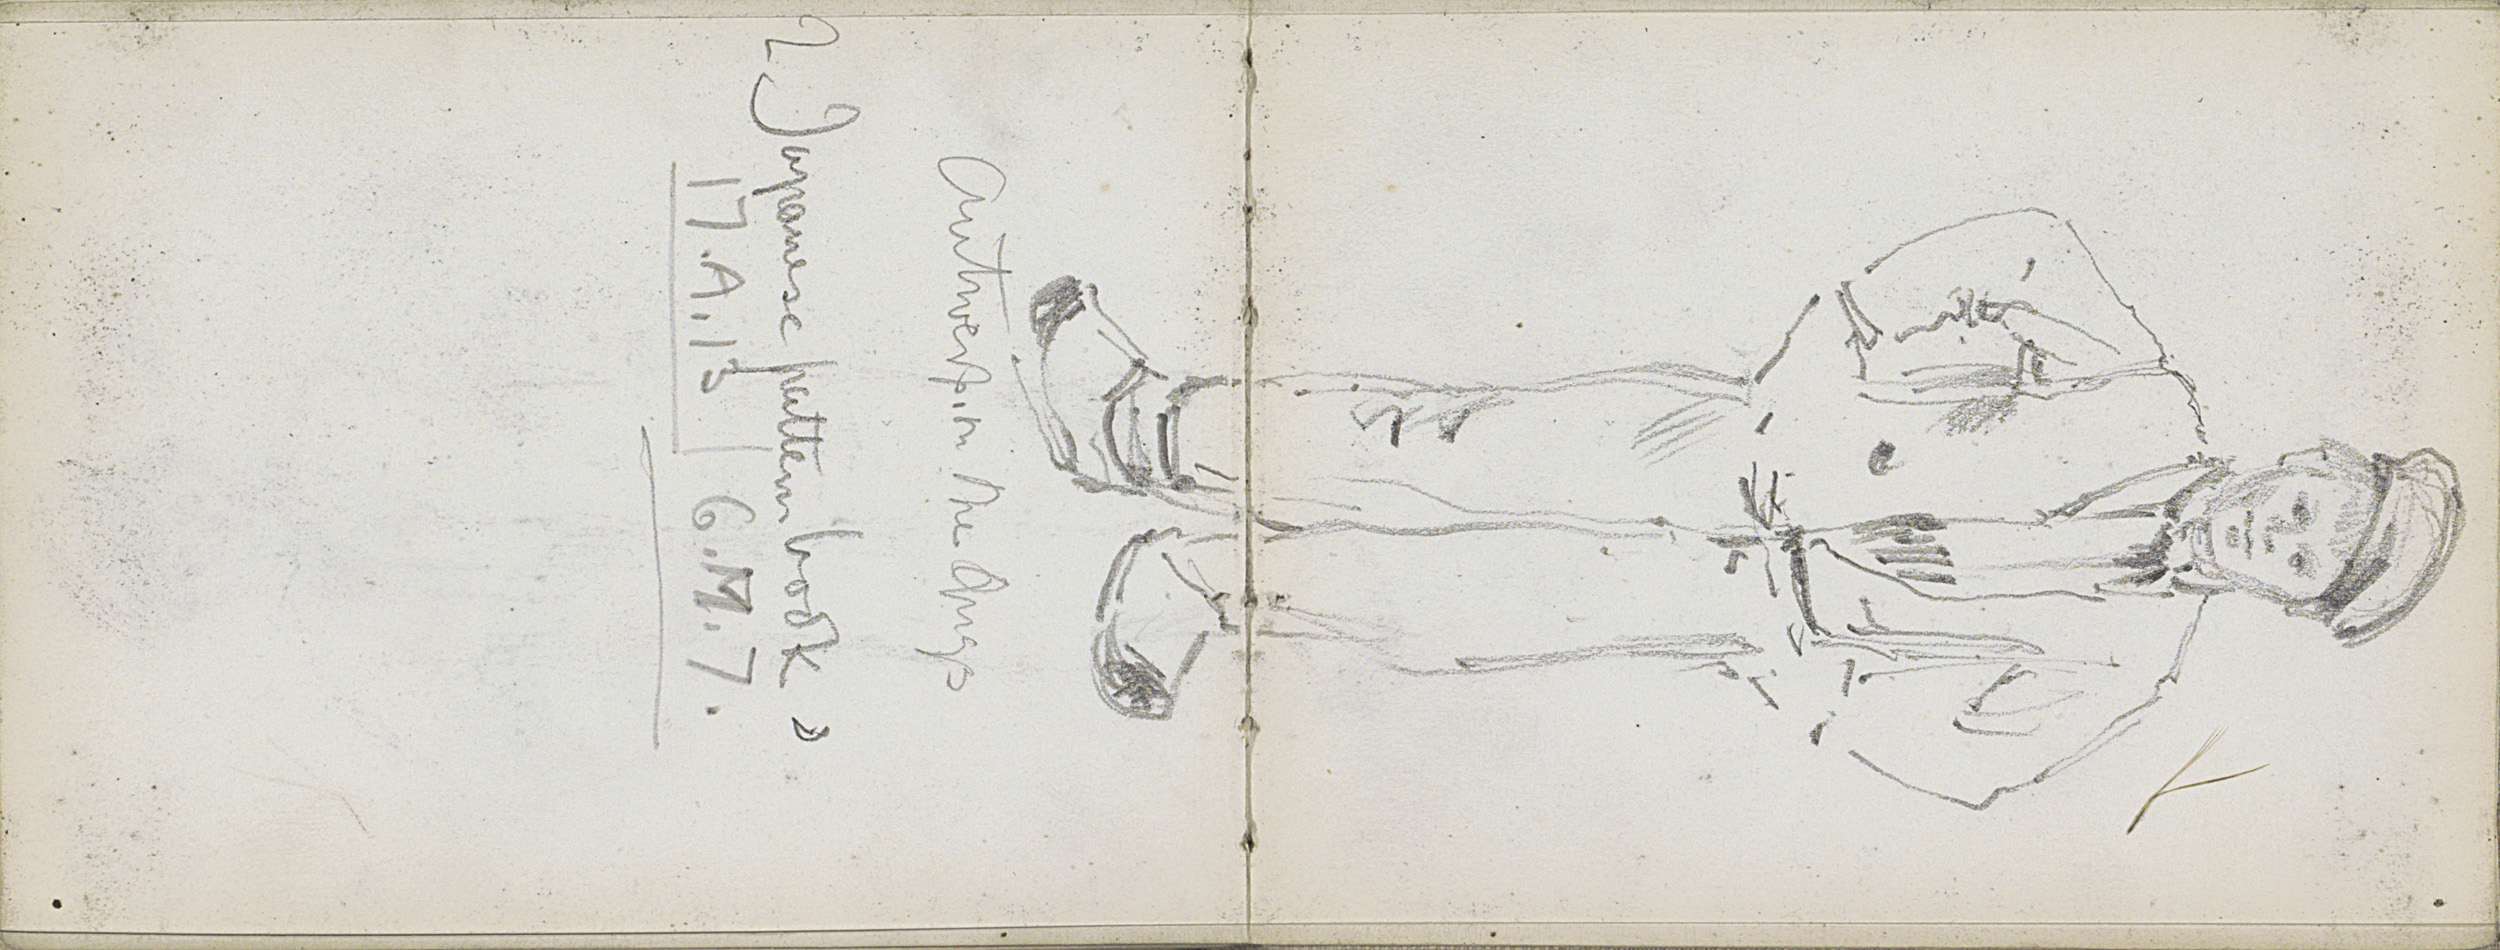 Antwerp. in the
2 Japanese pattern books
17.A.15. | 6.M.7.